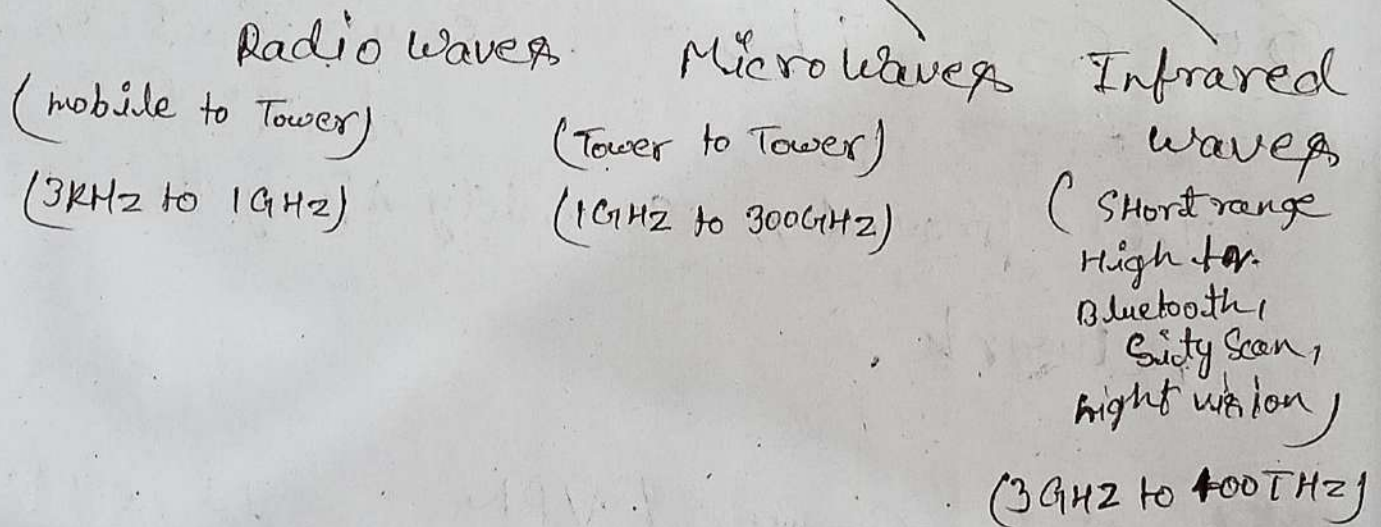 Radio Waves
(mobile to Tower)
(3KHz to 1GHz)
Micro Waves
(Tower to Tower)
(1GHz to 300GHz)
Infrared
waves
(SHort range
High fr.
Bluetooth,
Scan,
night vision)
(3GHz to 400THz)